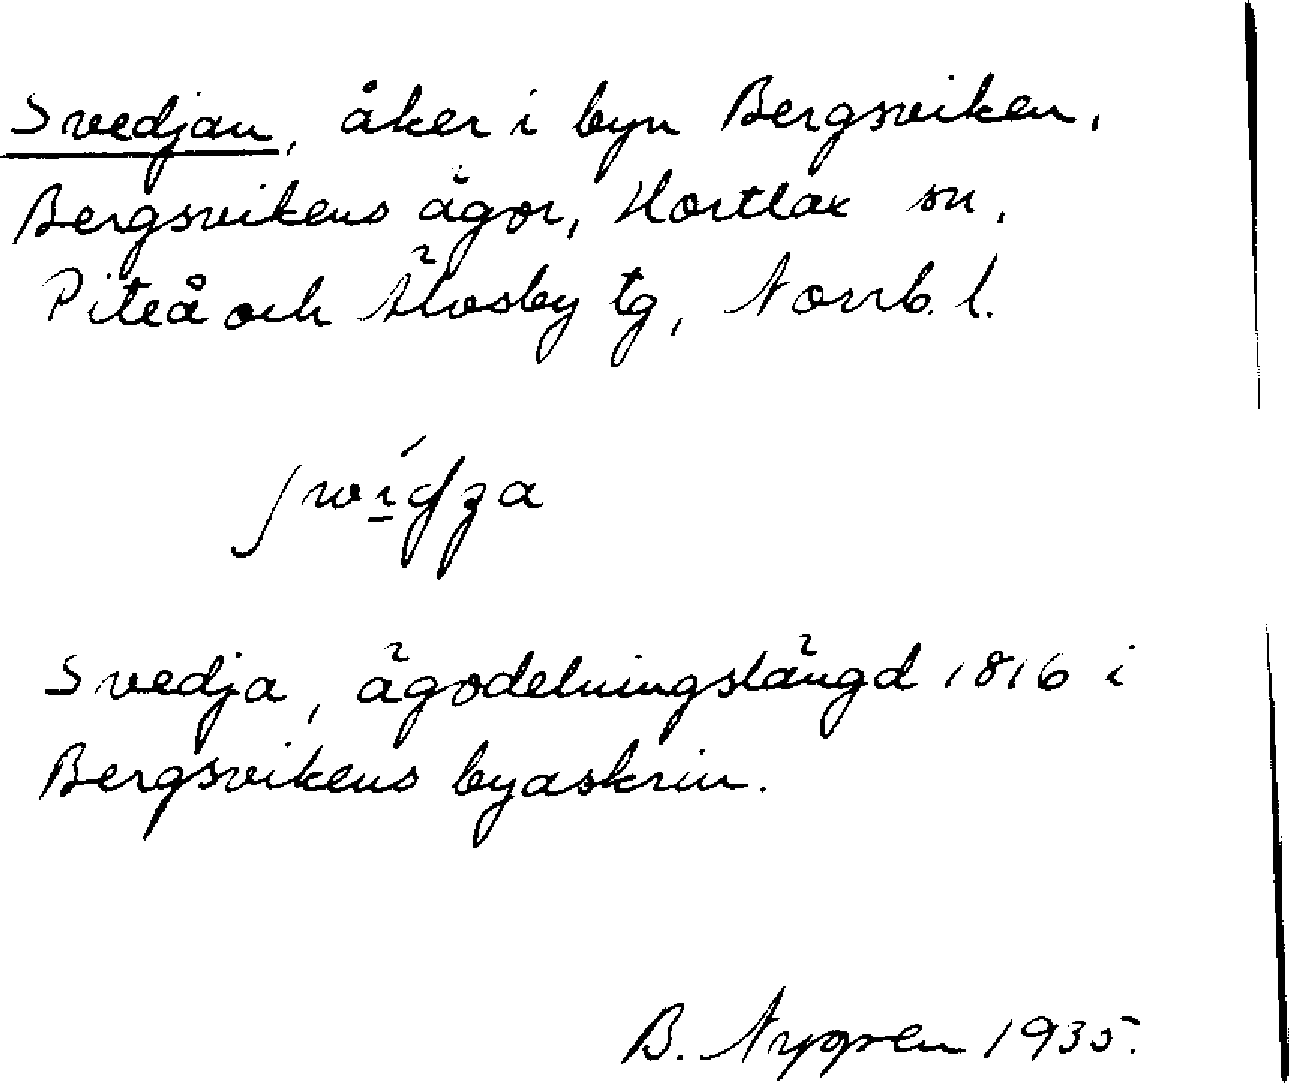 Svedjan, åker i byn Bergsviken,
Bergsvikens ägor, Hortlax sn,
Piteå och Älvsby tg, Norrb. l.
Svedja, ägodelningslängd 1816 i
Bergsvikens byaskrin.
B. Nygren 1935.